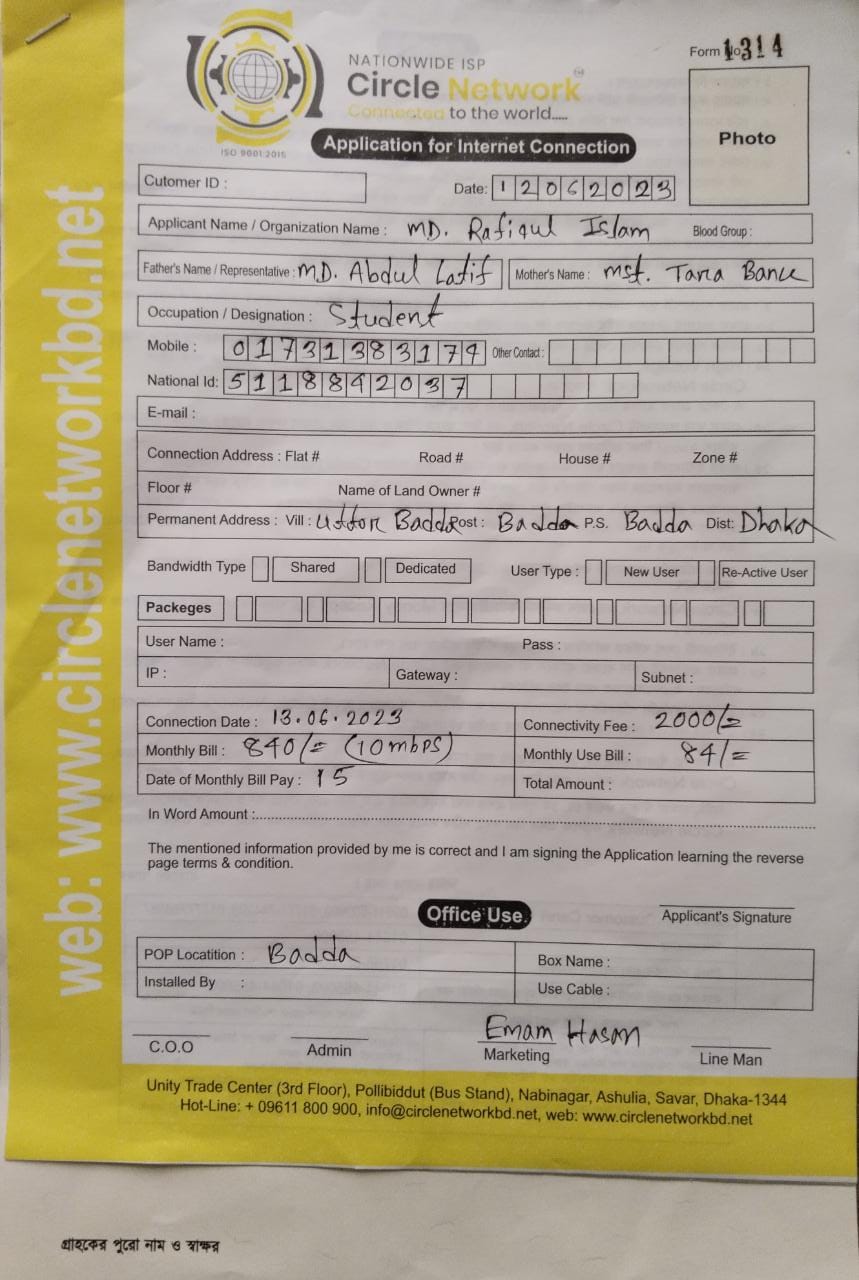 NATIONWIDE ISP
Circle Network
Connected to the world.....
ISO 9001:2015
Form No 1314
Photo
Application for Internet Connection
Cutomer ID :
Date: 12062023
Applicant Name / Organization Name : MD. Rafiqul Islam Blood Group :
Father's Name / Representative : M.D. Abdul Latif Mother's Name : mst. Tara Banu
Occupation / Designation : Student
Mobile : 01731383174 Other Contact :
National Id: 5118842037
E-mail :
Connection Address : Flat # Road # House # Zone #
Floor # Name of Land Owner #
Permanent Address : Vill : Uttor Badda Post : Badda P.S. Badda Dist: Dhaka
Bandwidth Type Shared Dedicated User Type : New User Re-Active User
Packeges
User Name : Pass :
IP : Gateway : Subnet :
Connection Date : 13.06.2023 Connectivity Fee : 2000/=
Monthly Bill : 840/= (10mbps) Monthly Use Bill : 84/=
Date of Monthly Bill Pay : 15 Total Amount :
In Word Amount :
The mentioned information provided by me is correct and I am signing the Application learning the reverse
page terms & condition.
Office Use
Applicant's Signature
POP Locatition : Badda Box Name :
Installed By : Use Cable :
Emam Hasan
C.O.O Admin Marketing Line Man
Unity Trade Center (3rd Floor), Pollibiddut (Bus Stand), Nabinagar, Ashulia, Savar, Dhaka-1344
Hot-Line: + 09611 800 900, info@circlenetworkbd.net, web: www.circlenetworkbd.net
web: www.circlenetworkbd.net
গ্রাহকের পুরো নাম ও স্বাক্ষর